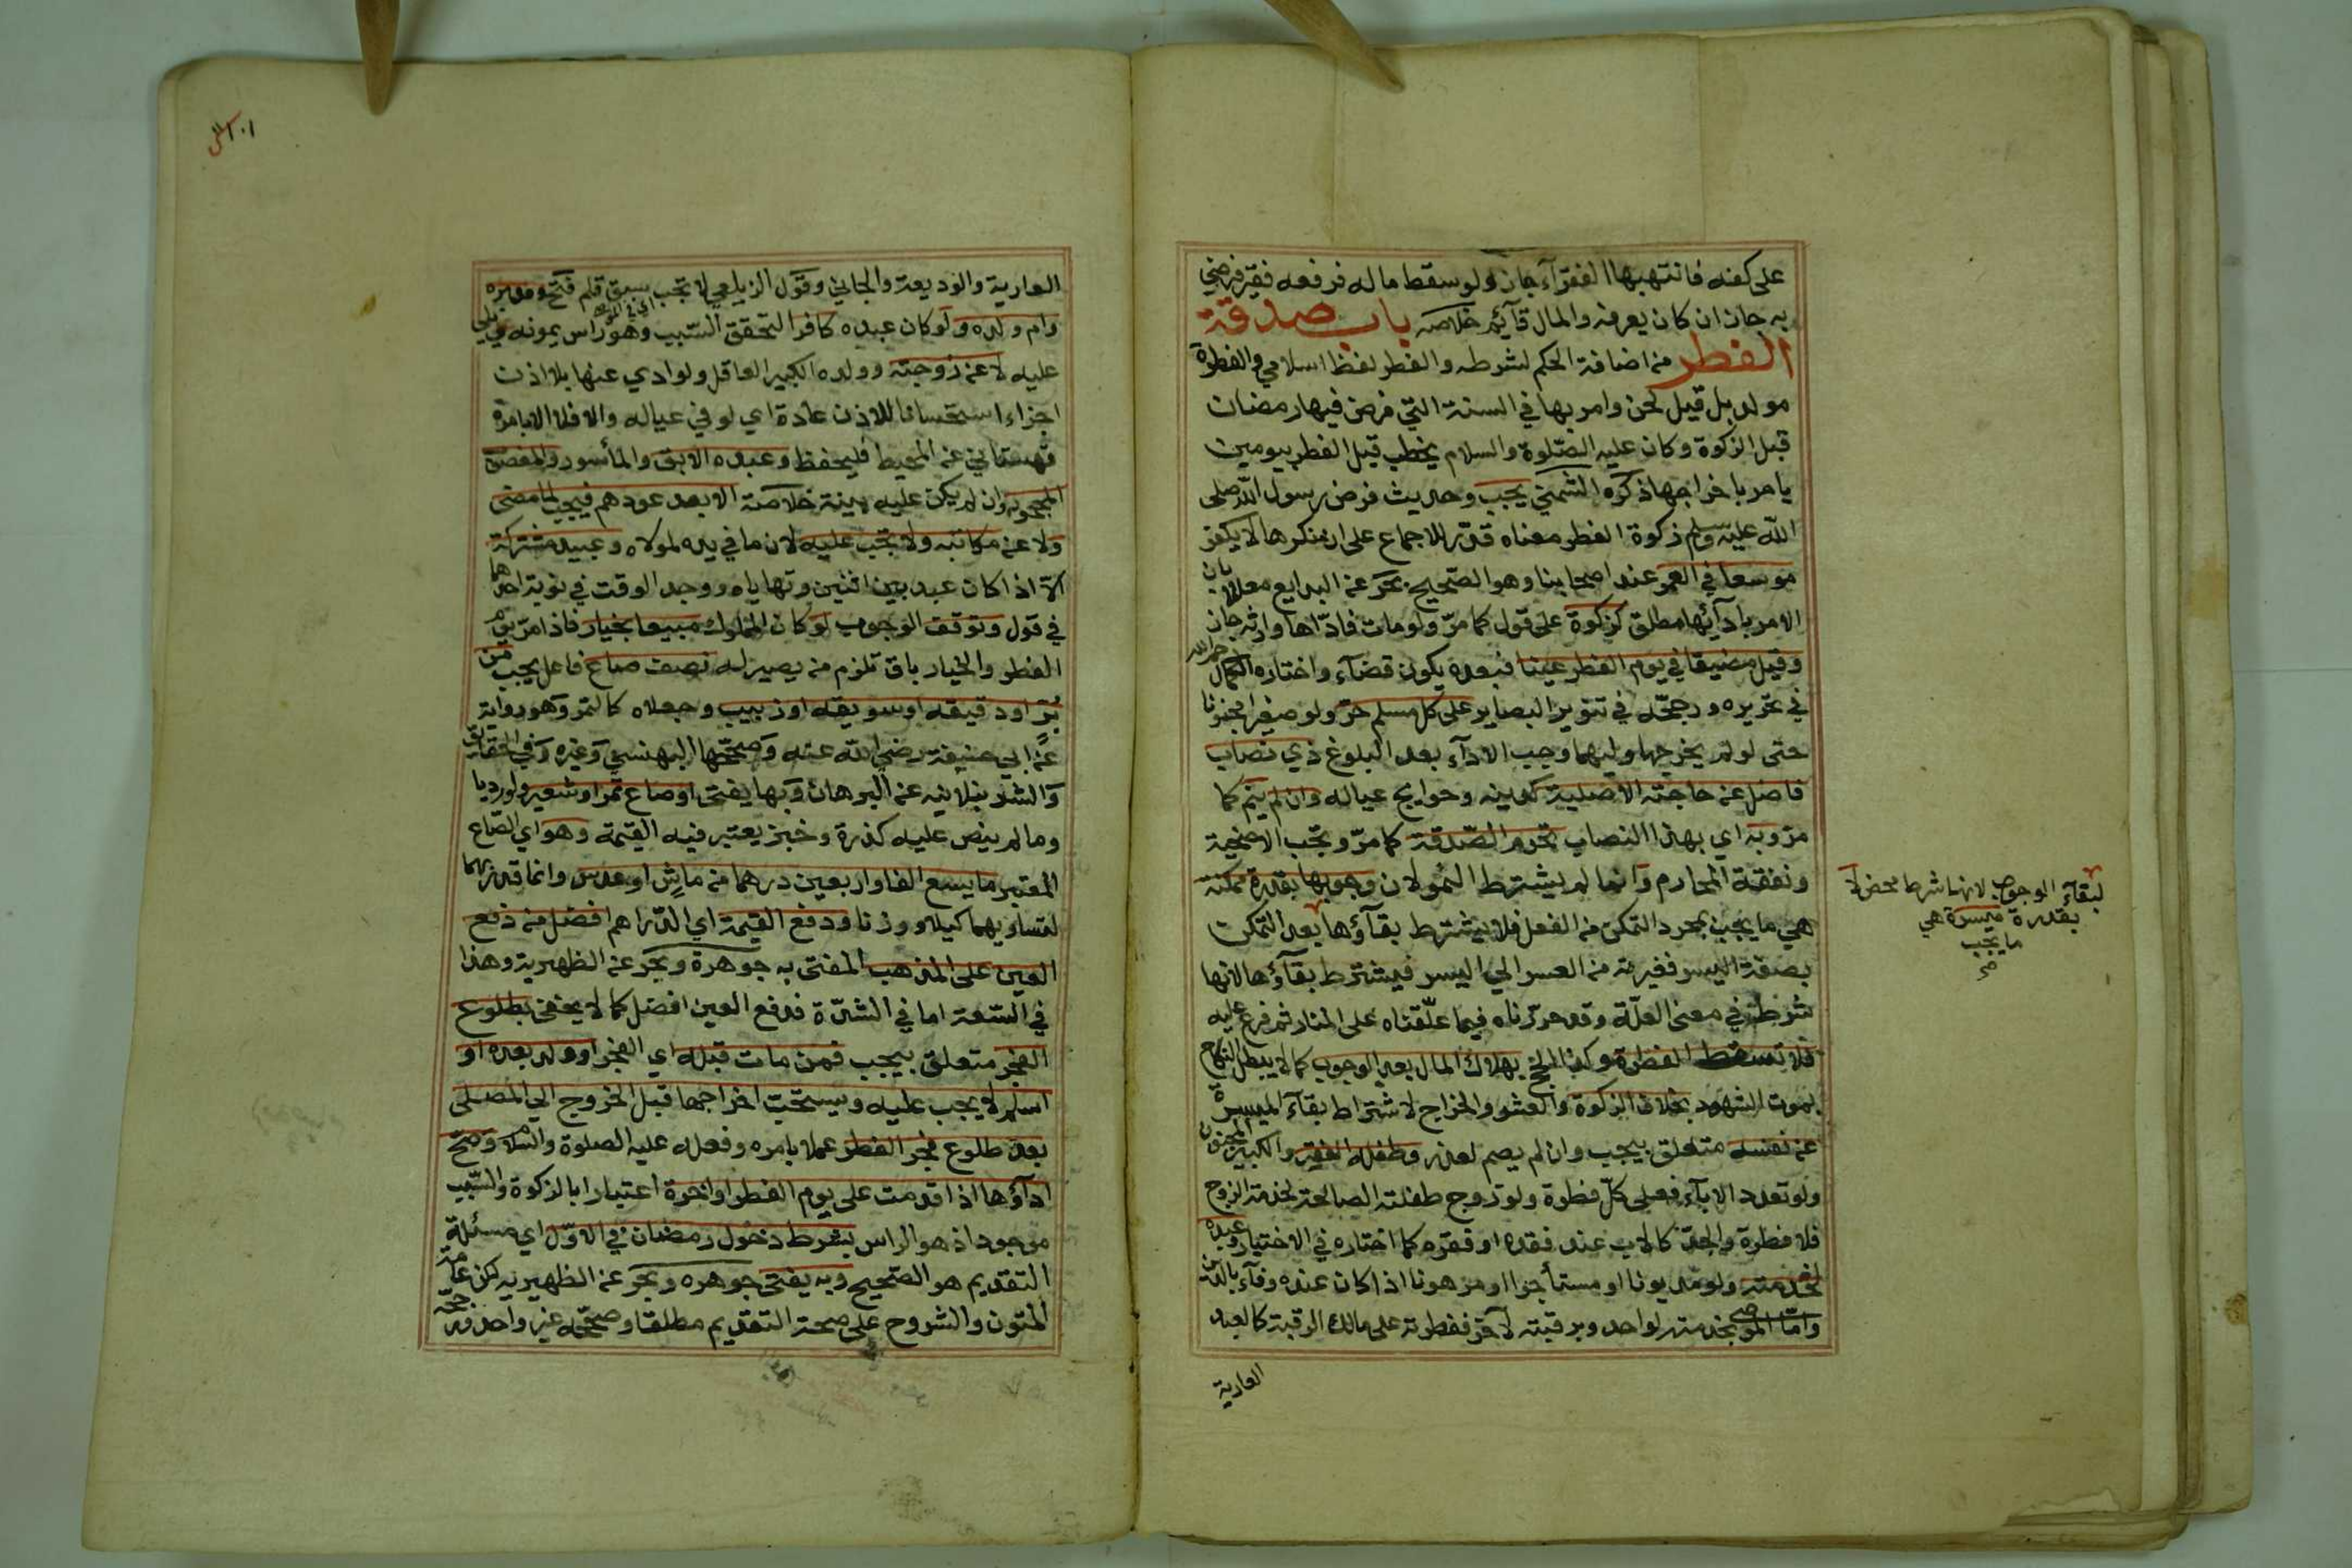 على كفه فانتهبها الفقرآء جاز ولو سقط ماله فرفعه فقير فرضي
به جاز ان كان يعرفه والمال قآئم خلاصه باب صدقة
الفطر من اضافة الحكم لشرطه والفطر لفظ اسلامي والفطرة
مولد بل قيل لحن وامر بها في السنة التي فرض فيها رمضان
قبل الزكوة وكان عليه الصلوة والسلام يخطب قبل الفطر بيومين
يامر باخراجها ذكره الشمني يجب وحديث فرض رسول الله صلى
الله عليه وسلم زكوة الفطر معناه قدر للاجماع على ان منكرها لا يكفر
موسعا في العمر عند اصحابنا وهو الصحيح بحر عن البدايع معللا بان
الامر بادآئها مطلق كزكوة على قول كما مر ولو مات فادّاها وارثه جاز
وقيل مضيقا في يوم الفطر عينا فبعده يكون قضآء واختاره الكمال رحمه الله
في تحريره ورجحه في تنوير البصاير على كل مسلم حر ولو صغيرا مجنونا
حتى لو لم يخرجها وليهما وجب الادآء بعد البلوغ ذي نصاب
فاضل عن حاجته الاصلية كدينه وحوايج عياله وان لم ينم كما
مر وبه اي بهذا النصاب تحرم الصدقة كما مر وتجب الاضحية
ونفقة المحارم وانما لم يشترط النمو لان وجوبها بقدرة ممكنة
هي ما يجب بمجرد التمكن من الفعل فلا يشترط بقآؤها بعد التمكن
بصفة اليسر فغيرته من العسر الي اليسر فيشترط بقآؤها لانها
شرط في معنى العلّة وقد حررناه فيما علّقناه على المنار ثم فرع عليه
فلا تسقط الفطرة وكذا الحج بهلاك المال بعد الوجوب كما لا يبطل النكاح
بموت الشهود بخلاف الزكوة والعشر والخراج لاشتراط بقآء الميسرة
عن نفسه متعلق بيجب وان لم يصم لعذر وطفله الفقير والكبير المجنون
ولو تعدد الابآء فعلى كلّ فطرة ولو زوج طفلته الصالحة لخدمة الزوج
فلا فطرة والجد كالاب عند فقده او فقره كما اختاره في الاختيار وعبده
لخدمته ولو مديونا او مستأجرا او مرهونا اذا كان عنده وفآء بالدين
وامّا الموصى بخدمته لواحد وبرقبته لآخر ففطرته على مالك الرقبة كالعبد
العارية
لبقآء الوجوب لانها شرط محض لا
بقدرة ميسرة هي
ما يجب
صح
١٠١
العارية والوديعة والجاني وقول الزيلعي لا تجب سبق قلم فتح ومدبره
وام ولده ولو كان عبده كافرا لتحقق السبب وهو راس يمونه ويلي
عليه لا عن زوجته وولده الكبير العاقل ولو ادي عنها بلا اذن
اجزاء استحسانا للاذن عادة اي لو في عياله والا فلا الا بامره
قهستاني عن المحيط فليحفظ وعبده الابق والمأسور والمغصوب
المجحود وان لم يكن عليه بينة خلاصة الا بعد عودهم فيجب لما مضى
ولا عن مكاتبه ولا تجب عليه لان ما في يده لمولاه وعبيد مشتركة
الا اذا كان عبد بين اثنين وتهاياه ووجد الوقت في نوبة احدهما
في قول وتوقف الوجوب لو كان المملوك مبيعا بخيار فاذا مر يوم
الفطر والخيار باق تلزم من يصير له نصف صاع فاعل يجب من
برّ او دقيقه او سويقه او زبيب وجعلاه كالتمر وهو رواية
عن ابي حنيفة رضي الله عنه وصححها البهنسي وغيره وفي الحقائق
والشرنبلالية عن البرهان وبها يفتى او صاع تمر او شعير ولو رديا
وما لم ينص عليه كذرة وخبز يعتبر فيه القيمة وهو اي الصاع
المعتبر ما يسع الفا واربعين درهما من ماش او عدس وانما قدر بهما
لتساويهما كيلا ووزنا ودفع القيمة اي الدراهم افضل من دفع
العين على المذهب المفتى به جوهرة وبحر عن الظهيرية وهذا
في السعة اما في الشدّة فدفع العين افضل كما لا يخفى بطلوع
الفجر متعلق بيجب فمن مات قبله اي الفجر او ولد بعده او
اسلم لا يجب عليه ويستحب اخراجها قبل الخروج الى المصلى
بعد طلوع فجر الفطر عملا بامره وفعله عليه الصلوة والسلام وصح
ادآؤها اذا قدمت على يوم الفطر او اخرة اعتبارا بالزكوة والسبب
موجود اذ هو الراس بشرط دخول رمضان في الاوّل اي مسئلة
التقديم هو الصحيح وبه يفتى جوهره وبحر عن الظهيريه لكن عامة
المتون والشروح على صحة التقديم مطلقا وصححه غير واحد ورجحه